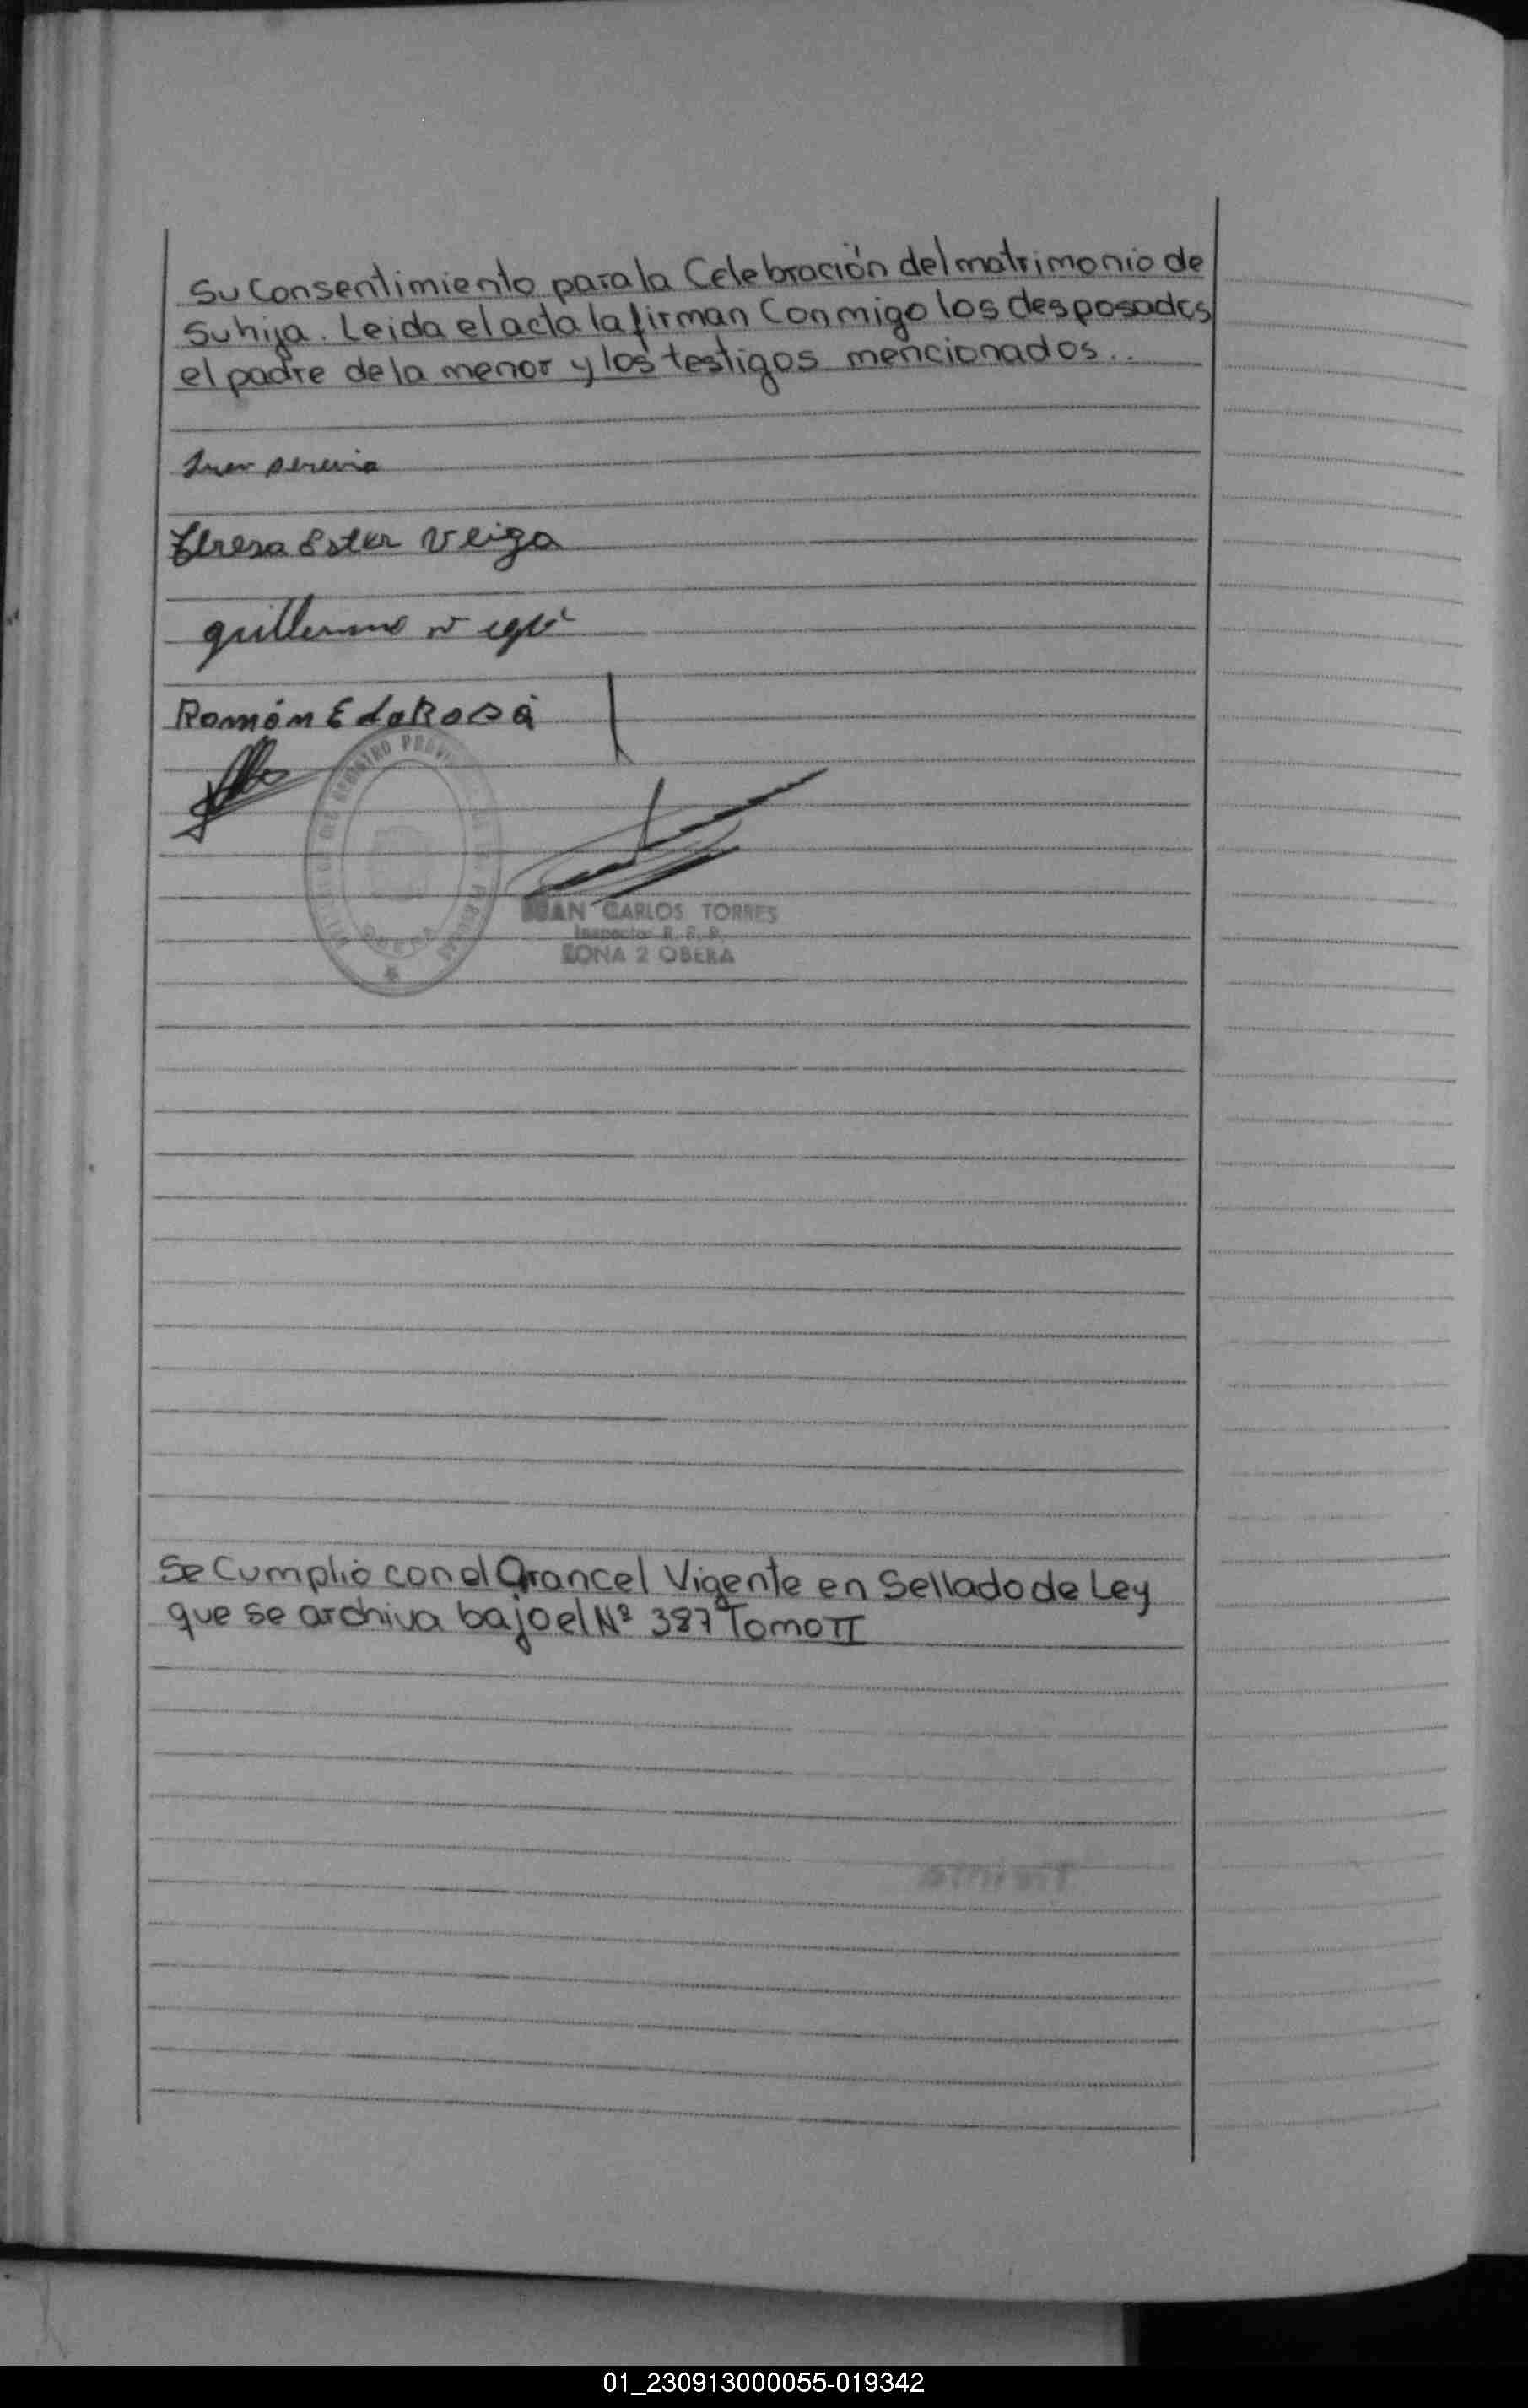 Su Consentimiento para la Celebración del matrimonio de
Su hija. Leida el acta la firman Conmigo los desposados
el padre de la menor y los testigos mencionados..
Teresa Ester Veiga
guillermo
Ramón E daRosa
REGISTRO PROV
JUAN CARLOS TORRES
Inspector R. P. P.
ZONA 2 OBERA
Se Cumplió con el Arancel Vigente en Sellado de Ley
que se archiva bajo el Nº 387 Tomo II
01_230913000055-019342